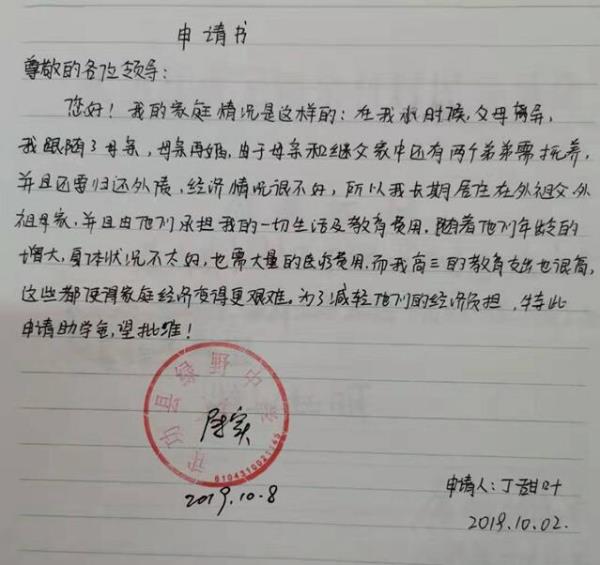 申请书
尊敬的各位领导:
您好！我的家庭情况是这样的:在我小时候,父母离异,
我跟随了母亲,母亲再婚,由于母亲和继父家中还有两个弟弟需抚养,
并且还要归还外债,经济情况很不好,所以我长期居住在外祖父、外
祖母家,并且由他们承担我的一切生活及教育费用。随着他们年龄的
增大,身体状况不太好,也需大量的医疗费用,而我高三的教育支出也很高,
这些都使得家庭经济变得更艰难。为了减轻他们的经济负担,特此
申请助学金,望批准!
武功县绿野中学
6104310021163
属实
2019.10.8
申请人:丁甜叶
2019.10.02.